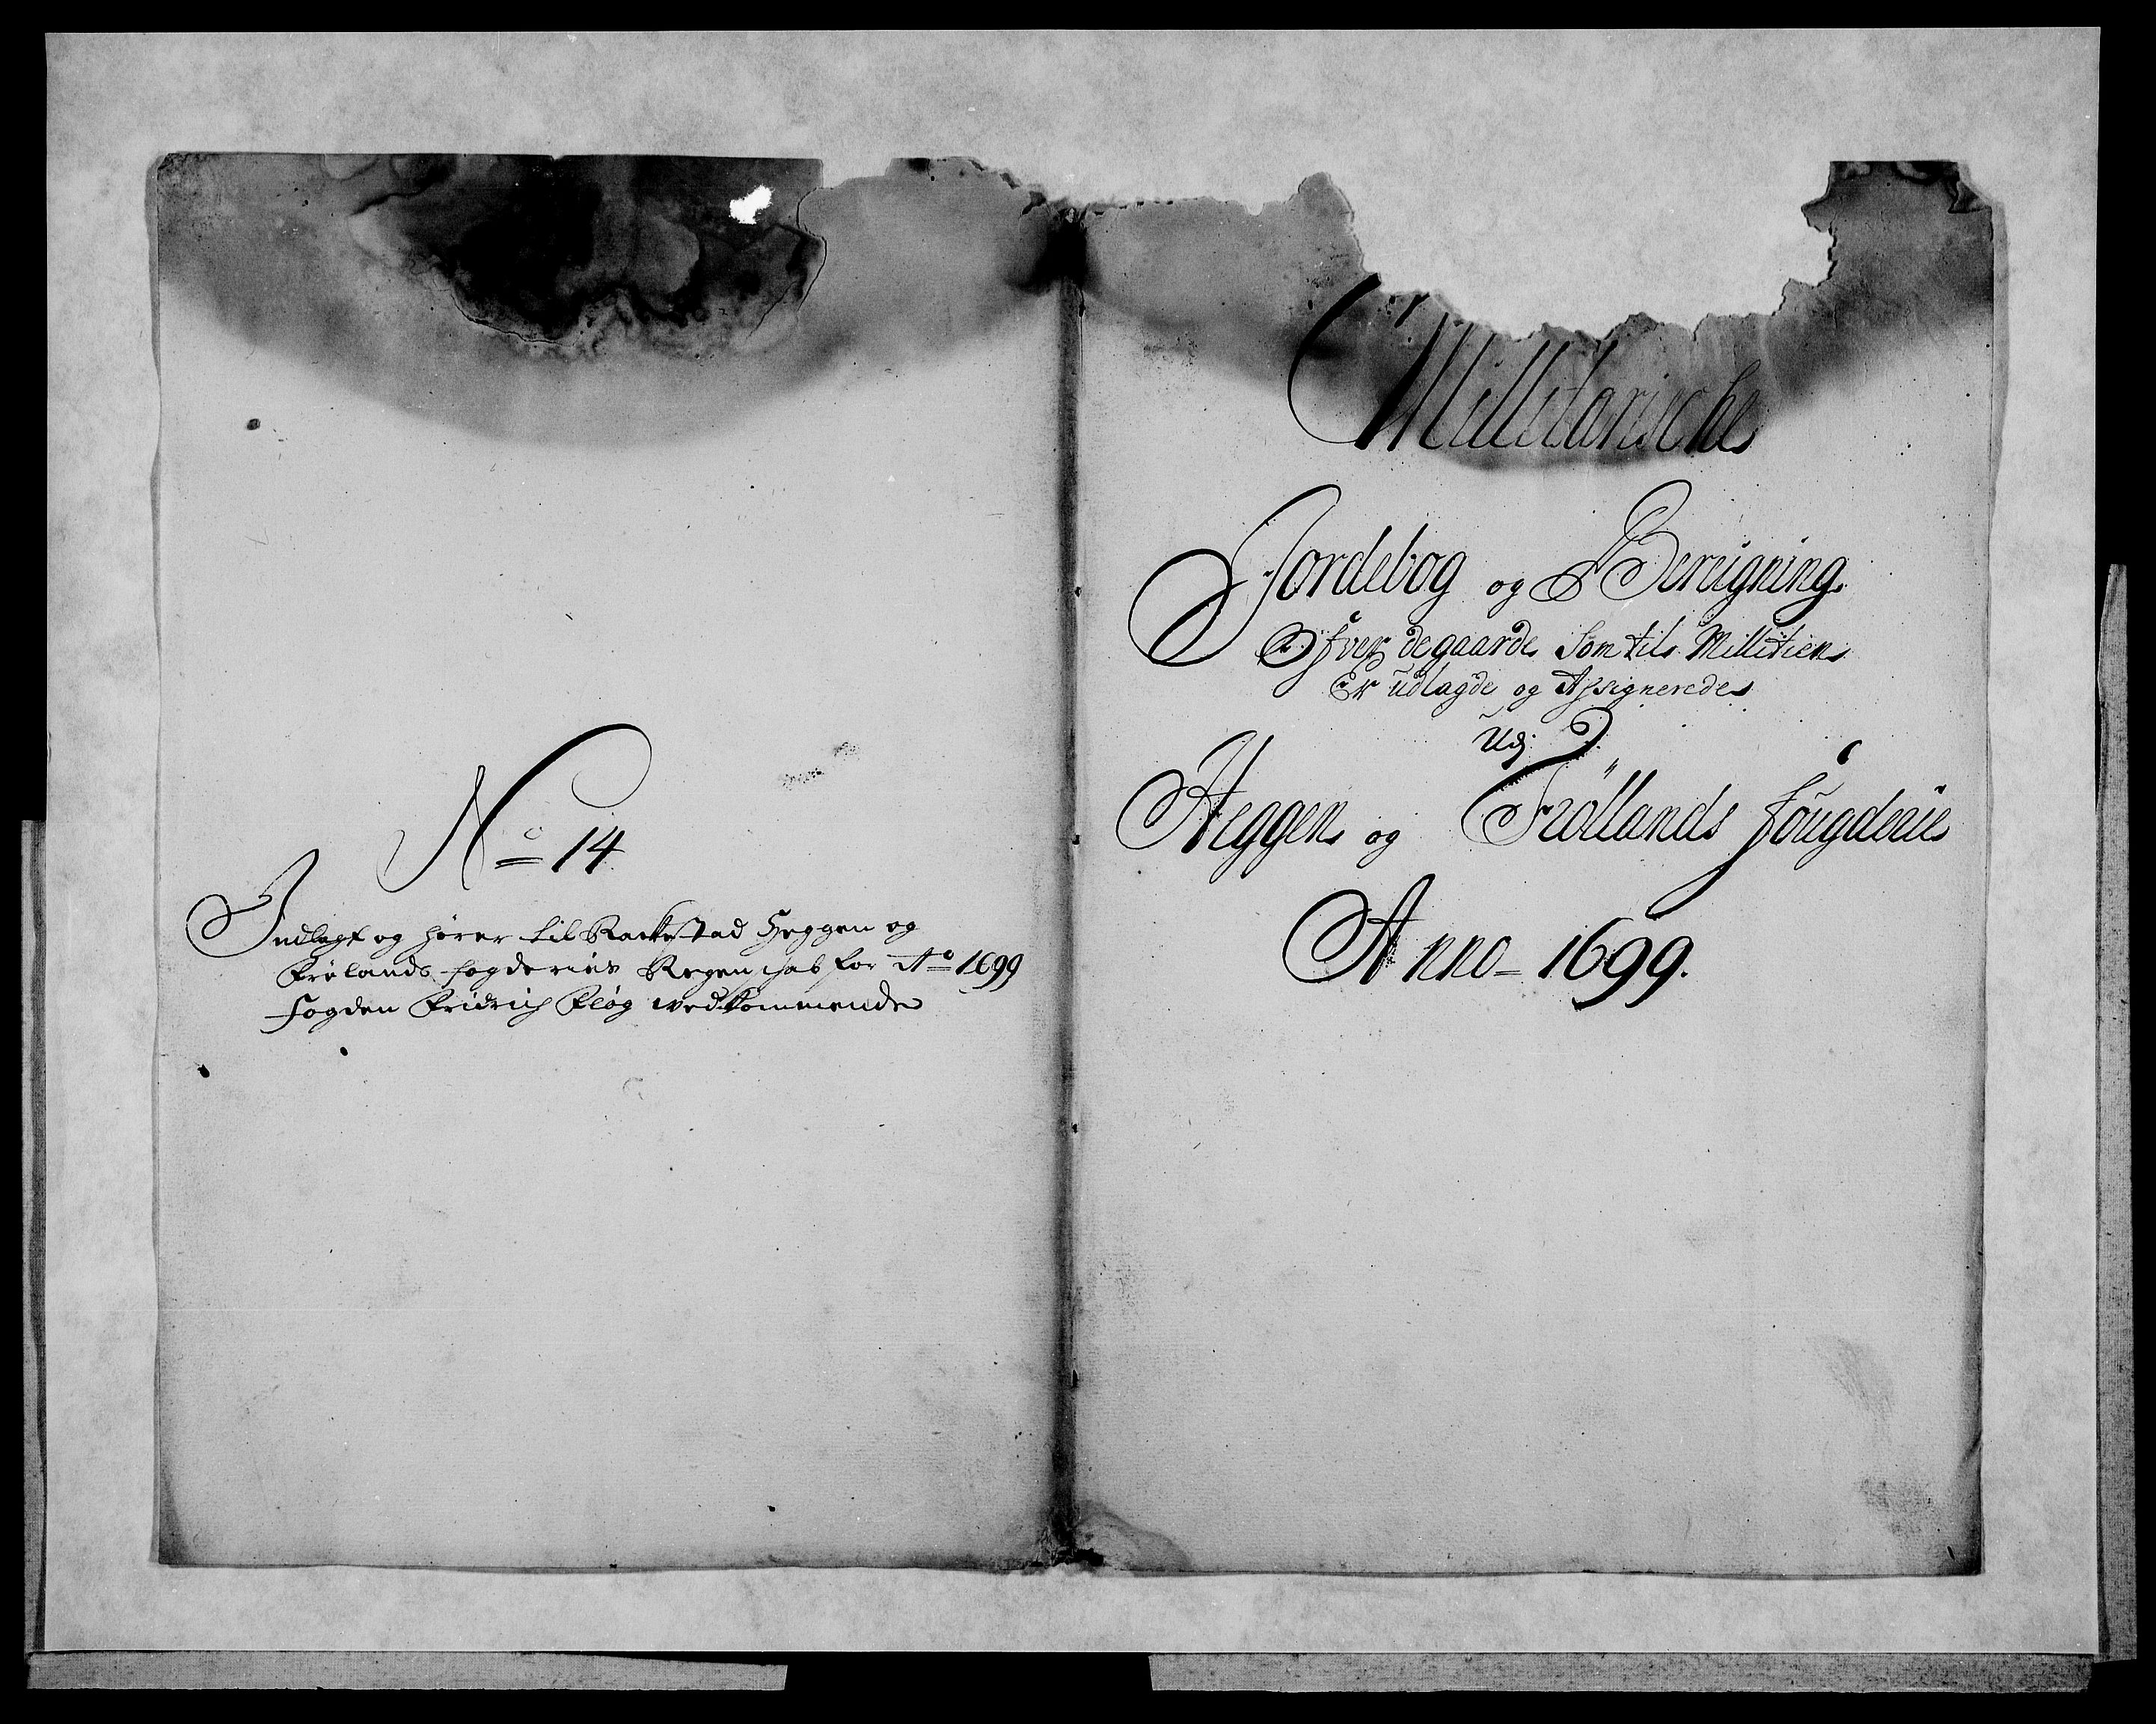 No 14
Indlagt og hører til Rackestad Heggen og
Frølands fogderies Regenschab for Ao 1699
Fogden Fridrich Kløg vedkommende
Millitarische
Jordebog og Bereigning
Ofver de gaarde Som til Millitien
Er udlagde og Assignerede
Udj
Heggen og Frøllands fougderie
Anno 1699.